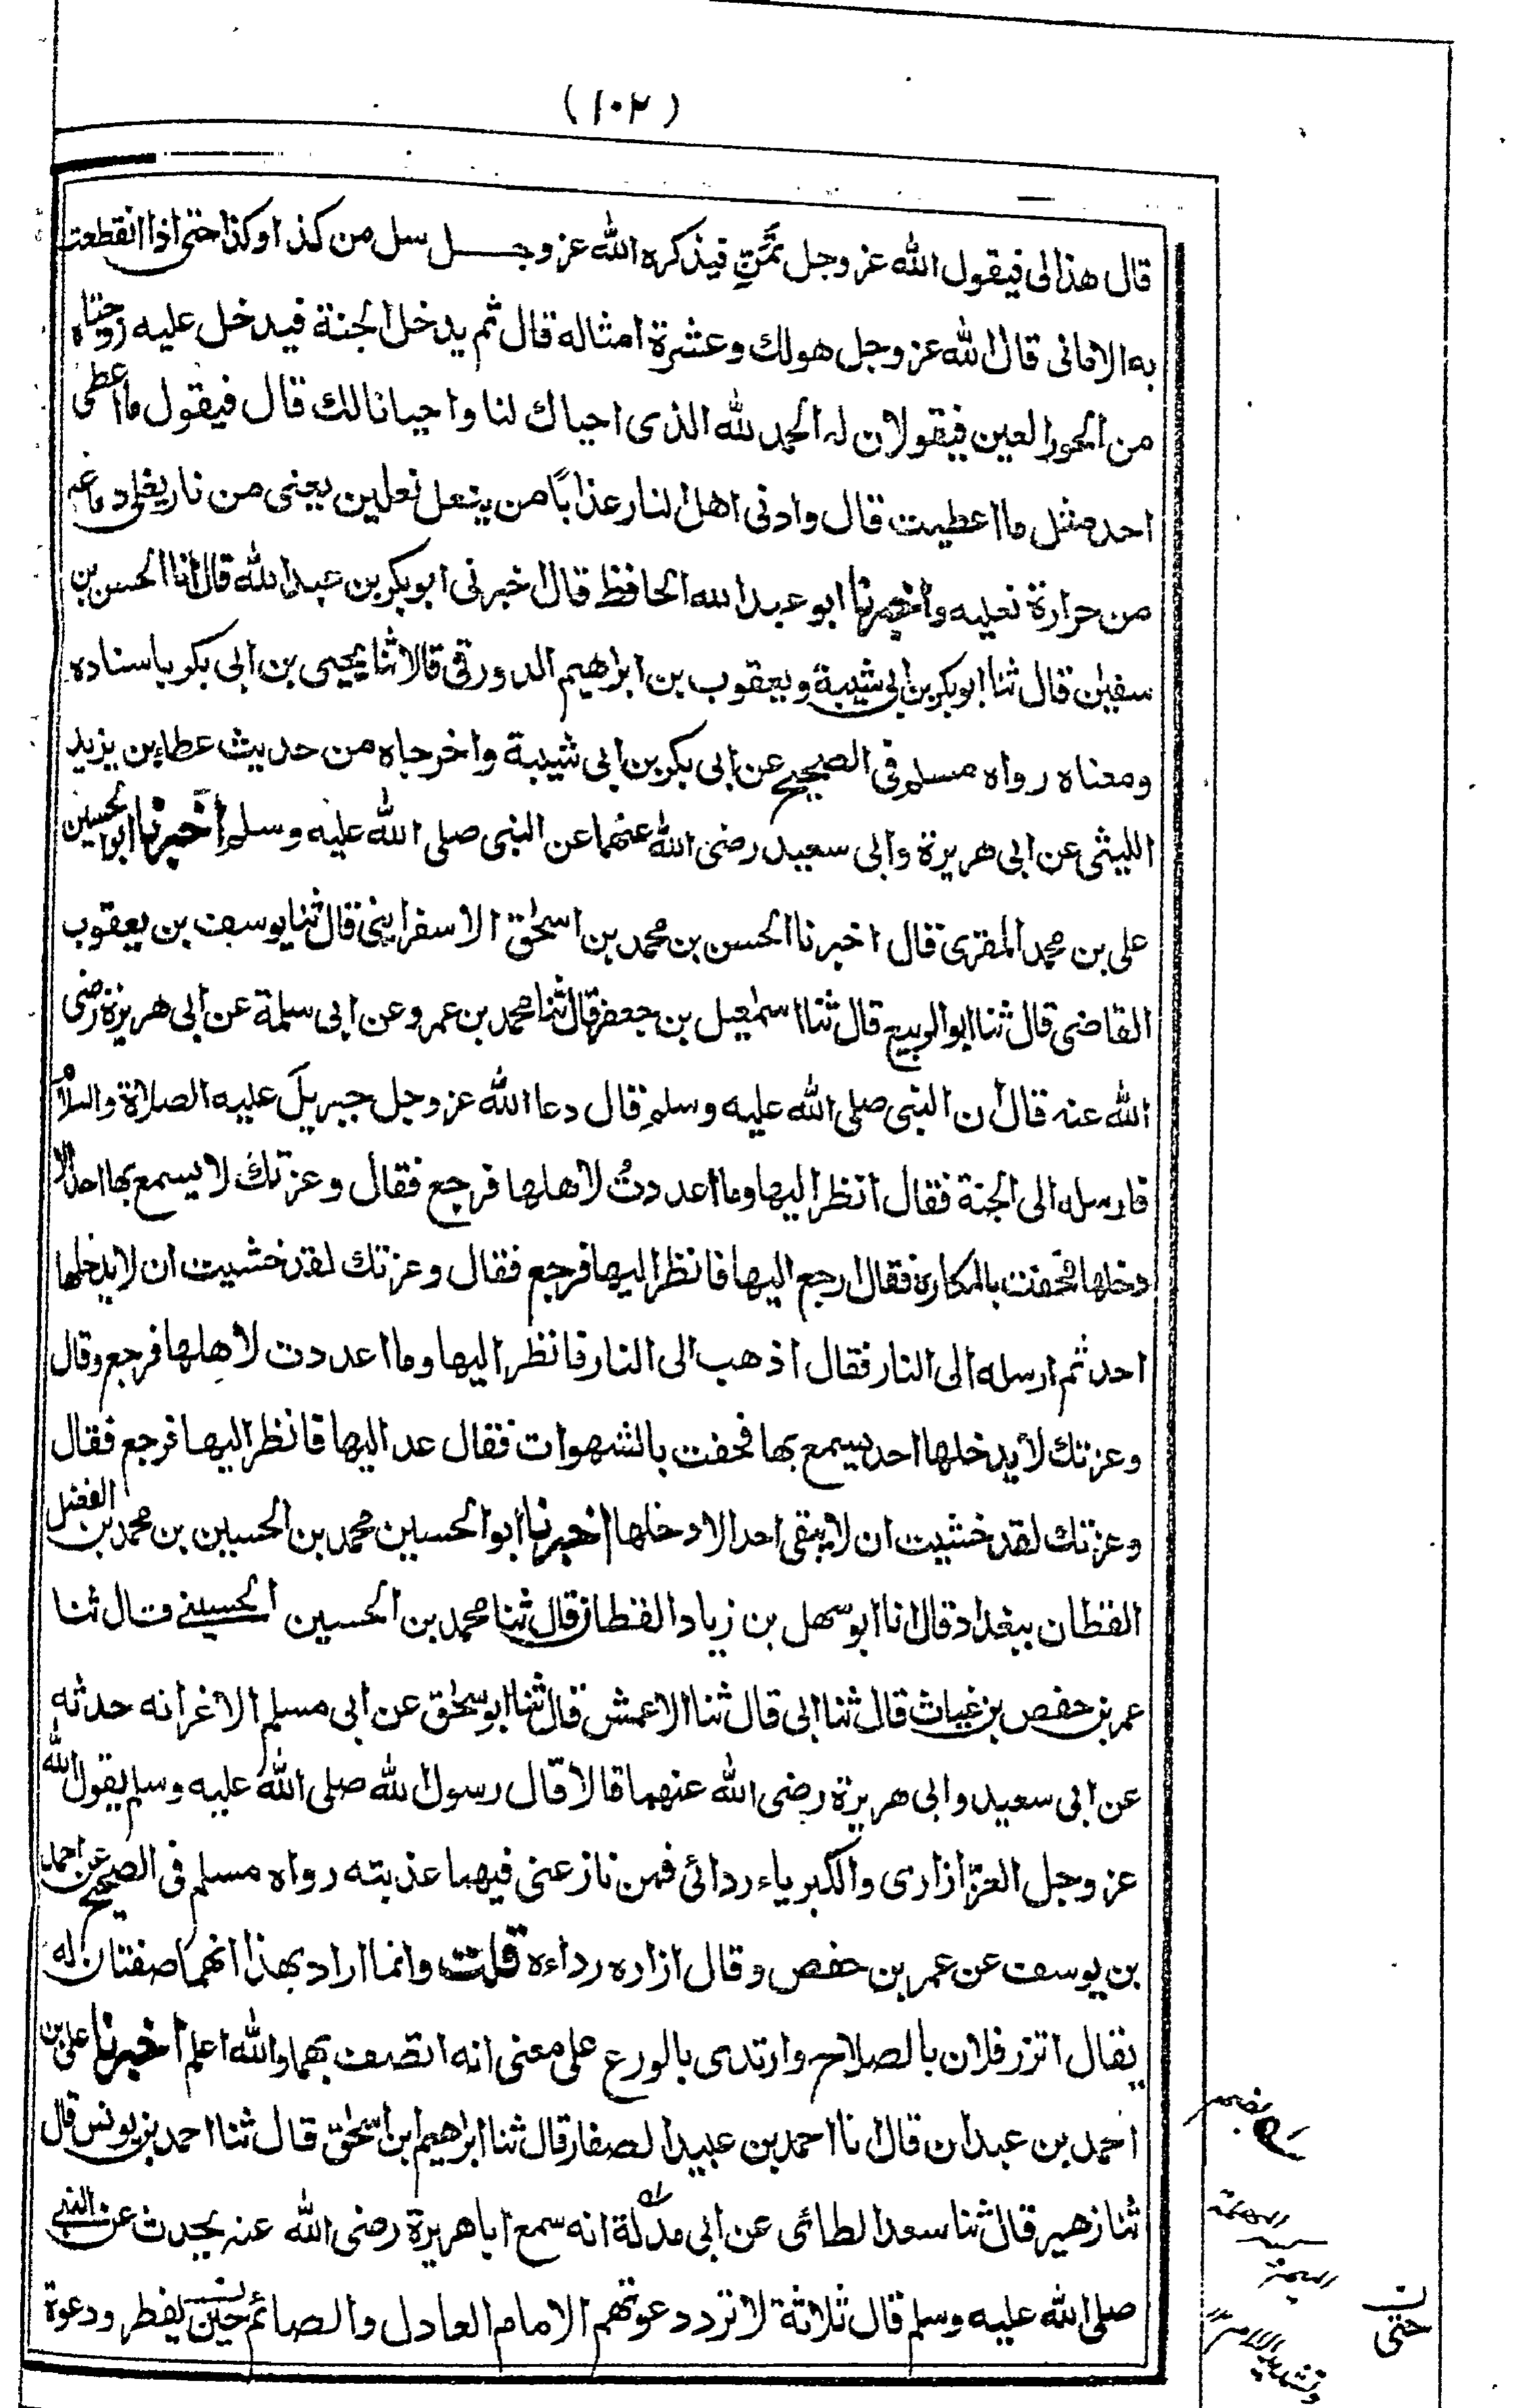 (۱۰۲)
قال هذا لى فيقول الله عز وجل تمنّ فيذكره الله عز وجل سل من كذا وكذا حتى اذا انقطعت
به الامانى قال الله عز وجل هولك وعشرة امثاله قال ثم يدخل الجنة فيدخل عليه زوجتاه
من الحور العين فيقولان له الحمد لله الذى احياك لنا واحيانا لك قال فيقول ما اعطى
احد مثل ما اعطيت قال وادنى اهل النار عذاباً من ينعل نعلين يعنى من نار يغلى دماغه
من حرارة نعليه واخبرنا ابو عبد الله الحافظ قال اخبرنى ابوبكر بن عبد الله قال انا الحسن بن
سفيٰن قال ثنا ابوبكر بن ابى شيبة ويعقوب بن ابراهيم الدورقى قالا ثنا يحيى بن ابى بكر باسناده
ومعناه رواه مسلم فى الصحيح عن ابى بكر بن ابى شيبة واخرجاه من حديث عطاء بن يزيد
الليثى عن ابى هريرة وابى سعيد رضى الله عنهما عن النبى صلى الله عليه وسلم اخبرنا ابو الحسين
على بن محمد المقرى قال اخبرنا الحسن بن محمد بن اسحٰق الاسفراينى قال ثنا يوسف بن يعقوب
القاضى قال ثنا ابو الربيع قال ثنا اسمٰعيل بن جعفر قال ثنا محمد بن عمرو عن ابى سلمة عن ابى هريرة رضى
الله عنه قال ان النبى صلى الله عليه وسلم قال دعا الله عز وجل جبريل عليه الصلاة والسلام
فارسله الى الجنة فقال انظر اليها وما اعددتُ لاهلها فرجع فقال وعزتك لا يسمع بها احد الا
دخلها فحفت بالمكاره فقال ارجع اليها فانظر اليها فرجع فقال وعزتك لقد خشيت ان لا يدخلها
احد ثم ارسله الى النار فقال اذهب الى النار فانظر اليها وما اعددت لاهلها فرجع وقال
وعزتك لا يدخلها احد يسمع بها فحفت بالشهوات فقال عد اليها فانظر اليها فرجع فقال
وعزتك لقد خشيت ان لا يبقى احد الا دخلها اخبرنا ابو الحسين محمد بن الحسين بن محمد بن الفضل
القطان ببغداد قال انا ابو سهل بن زياد القطان قال ثنا محمد بن الحسين الحسينى قال ثنا
عمر بن حفص بن غياث قال ثنا ابى قال ثنا الاعمش قال ثنا ابو سحٰق عن ابى مسلم الاغر انه حدثه
عن ابى سعيد وابى هريرة رضى الله عنهما قالا قال رسول الله صلى الله عليه وسلم يقول الله
عز وجل العزّ ازارى والكبرياء ردائى فمن نازعنى فيهما عذبته رواه مسلم فى الصحيح عن احمد
بن يوسف عن عمر بن حفص وقال ازاره رداءه قلت وانما اراد بهذا انهما صفتان له
يقال اتزر فلان بالصلاح وارتدى بالورع على معنى انه اتصف بهما والله اعلم اخبرنا على بن
احمد بن عبدان قال انا احمد بن عبيد الصفار قال ثنا ابراهيم ابن اسحٰق قال ثنا احمد بن يونس قال
ثنا زهير قال ثنا سعد الطائى عن ابى مدلة انه سمع ابا هريرة رضى الله عنه يحدث عن النبى
صلى الله عليه وسلم قال ثلاثة لا ترد دعوتهم الامام العادل والصائم حين يفطر ودعوة
ن
حتى